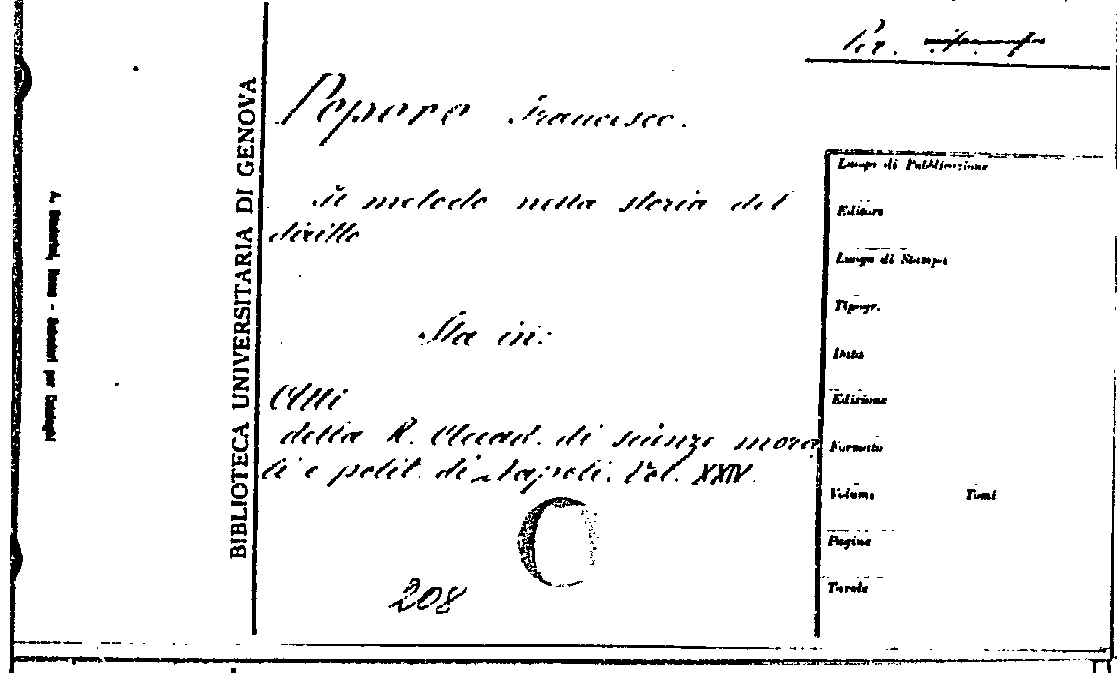 Per.
Pepere Francesco.
Il metodo nella storia del
diritto
Sta in:
Atti
della R. Accad. di scienze mora
li e polit. di Napoli. Vol. XXIV.
208
BIBLIOTECA UNIVERSITARIA DI GENOVA
Luogo di Pubblicazione
Editore
Luogo di Stampa
Tipogr.
Data
Edizione
Formato
Volume Tomi
Pagine
Tavole